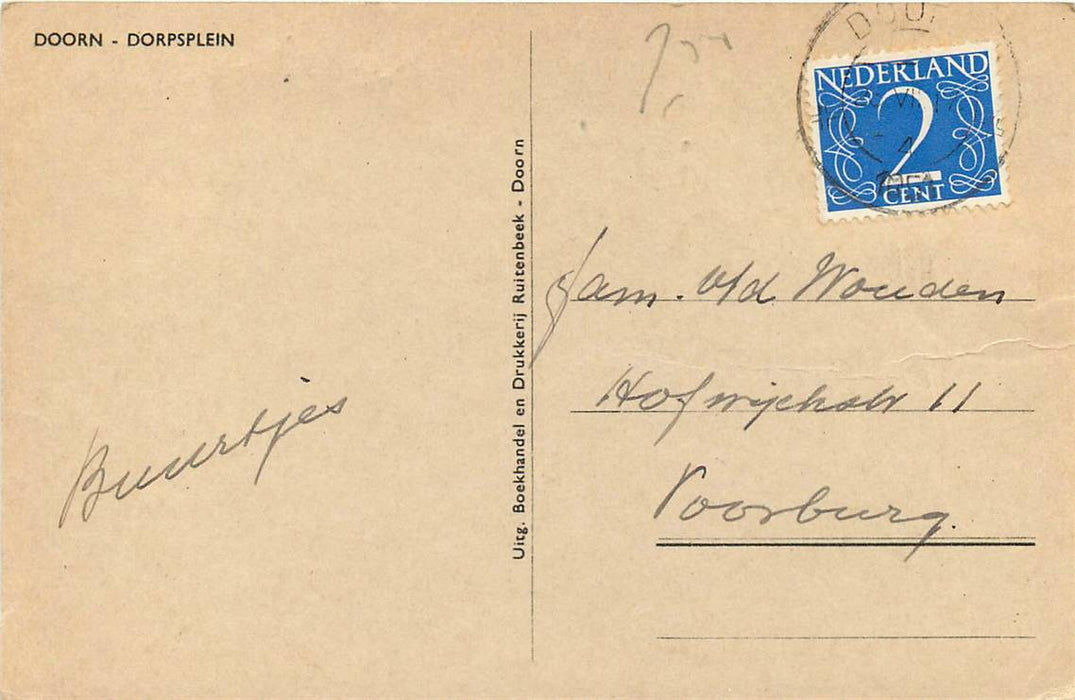 DOORN - DORPSPLEIN
Buurtjes
Uitg. Boekhandel en Drukkerij Ruitenbeek - Doorn
NEDERLAND
2
CENT
Fam. v/d Wouden
Hofwijckstr 11
Voorburg.